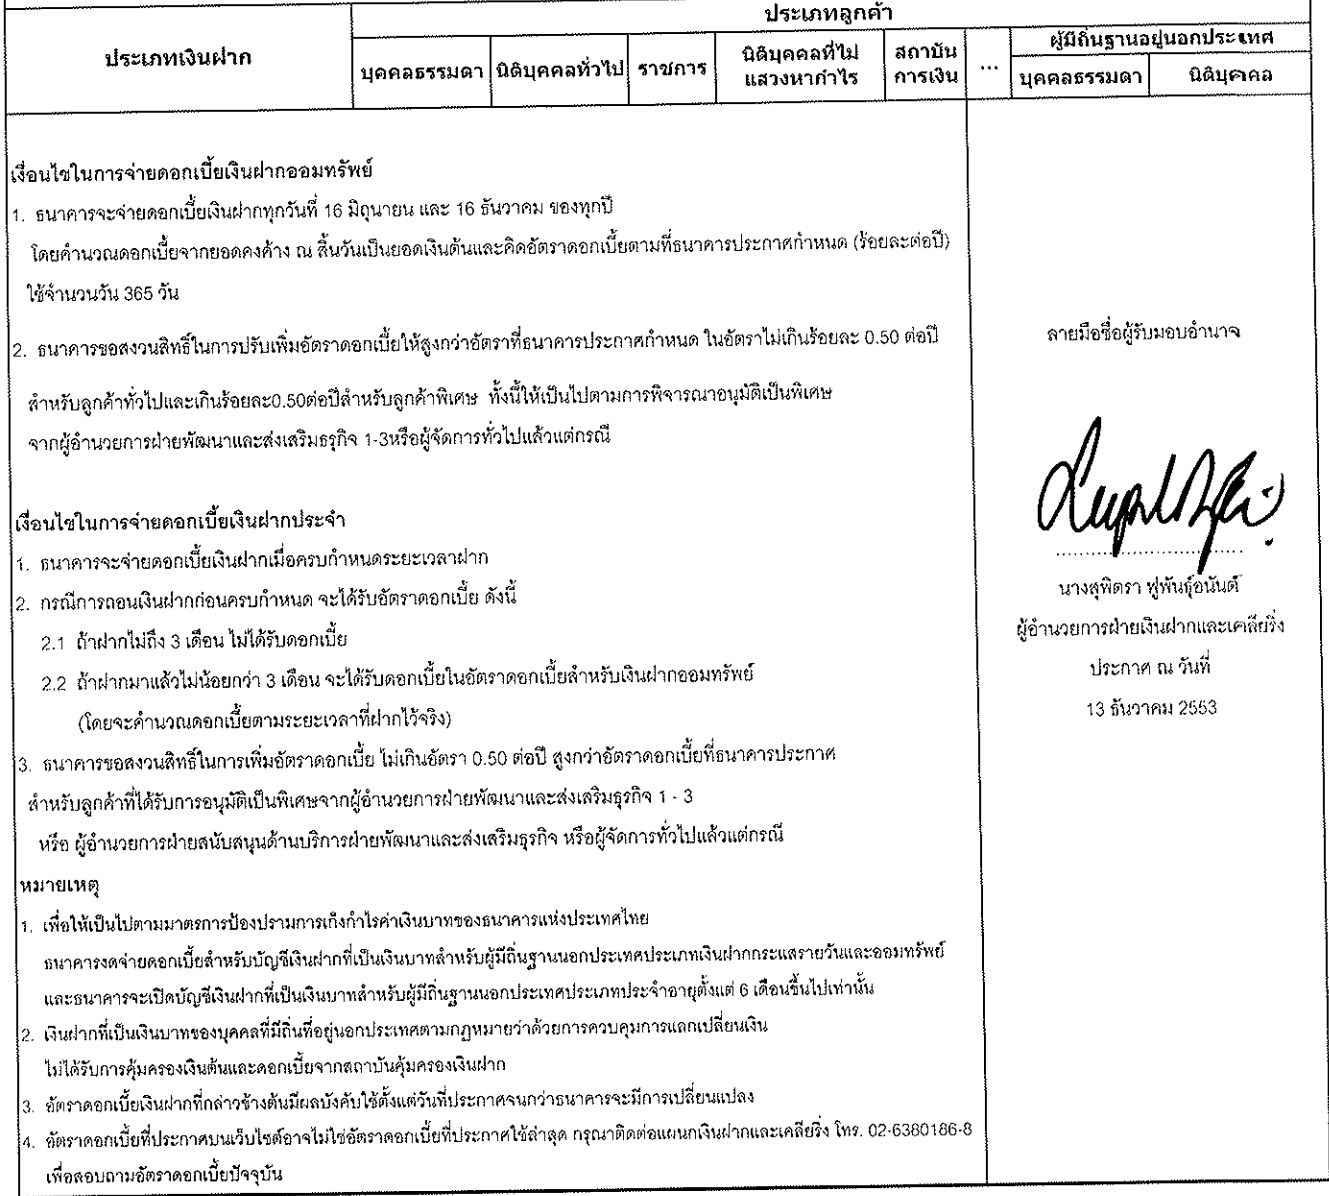 ประเภทลูกค้า
ประเภทเงินฝาก
บุคคลธรรมดา นิติบุคคลทั่วไป ราชการ นิติบุคคลที่ไม่แสวงหากำไร สถาบันการเงิน ... ผู้มีถิ่นฐานอยู่นอกประเทศ
บุคคลธรรมดา นิติบุคคล
เงื่อนไขในการจ่ายดอกเบี้ยเงินฝากออมทรัพย์
1. ธนาคารจะจ่ายดอกเบี้ยเงินฝากทุกวันที่ 16 มิถุนายน และ 16 ธันวาคม ของทุกปี
โดยคำนวณดอกเบี้ยจากยอดคงค้าง ณ สิ้นวันเป็นยอดเงินต้นและคิดอัตราดอกเบี้ยตามที่ธนาคารประกาศกำหนด (ร้อยละต่อปี)
ใช้จำนวนวัน 365 วัน
2. ธนาคารขอสงวนสิทธิ์ในการปรับเพิ่มอัตราดอกเบี้ยให้สูงกว่าอัตราที่ธนาคารประกาศกำหนด ในอัตราไม่เกินร้อยละ 0.50 ต่อปี
สำหรับลูกค้าทั่วไปและเกินร้อยละ0.50ต่อปีสำหรับลูกค้าพิเศษ ทั้งนี้ให้เป็นไปตามการพิจารณาอนุมัติเป็นพิเศษ
จากผู้อำนวยการฝ่ายพัฒนาและส่งเสริมธุรกิจ 1-3หรือผู้จัดการทั่วไปแล้วแต่กรณี
เงื่อนไขในการจ่ายดอกเบี้ยเงินฝากประจำ
1. ธนาคารจะจ่ายดอกเบี้ยเงินฝากเมื่อครบกำหนดระยะเวลาฝาก
2. กรณีการถอนเงินฝากก่อนครบกำหนด จะได้รับอัตราดอกเบี้ย ดังนี้
2.1 ถ้าฝากไม่ถึง 3 เดือน ไม่ได้รับดอกเบี้ย
2.2 ถ้าฝากมาแล้วไม่น้อยกว่า 3 เดือน จะได้รับดอกเบี้ยในอัตราดอกเบี้ยสำหรับเงินฝากออมทรัพย์
(โดยจะคำนวณดอกเบี้ยตามระยะเวลาที่ฝากไว้จริง)
3. ธนาคารขอสงวนสิทธิ์ในการเพิ่มอัตราดอกเบี้ย ไม่เกินอัตรา 0.50 ต่อปี สูงกว่าอัตราดอกเบี้ยที่ธนาคารประกาศ
สำหรับลูกค้าที่ได้รับการอนุมัติเป็นพิเศษจากผู้อำนวยการฝ่ายพัฒนาและส่งเสริมธุรกิจ 1 - 3
หรือ ผู้อำนวยการฝ่ายสนับสนุนด้านบริการฝ่ายพัฒนาและส่งเสริมธุรกิจ หรือผู้จัดการทั่วไปแล้วแต่กรณี
หมายเหตุ
1. เพื่อให้เป็นไปตามมาตรการป้องปรามการเก็งกำไรค่าเงินบาทของธนาคารแห่งประเทศไทย
ธนาคารงดจ่ายดอกเบี้ยสำหรับบัญชีเงินฝากที่เป็นเงินบาทสำหรับผู้มีถิ่นฐานนอกประเทศประเภทเงินฝากกระแสรายวันและออมทรัพย์
และธนาคารจะเปิดบัญชีเงินฝากที่เป็นเงินบาทสำหรับผู้มีถิ่นฐานนอกประเทศประเภทประจำอายุตั้งแต่ 6 เดือนขึ้นไปเท่านั้น
2. เงินฝากที่เป็นเงินบาทของบุคคลที่มีถิ่นที่อยู่นอกประเทศตามกฎหมายว่าด้วยการควบคุมการแลกเปลี่ยนเงิน
ไม่ได้รับการคุ้มครองเงินต้นและดอกเบี้ยจากสถาบันคุ้มครองเงินฝาก
3. อัตราดอกเบี้ยเงินฝากที่กล่าวข้างต้นมีผลบังคับใช้ตั้งแต่วันที่ประกาศจนกว่าธนาคารจะมีการเปลี่ยนแปลง
4. อัตราดอกเบี้ยที่ประกาศบนเว็บไซต์อาจไม่ใช่อัตราดอกเบี้ยที่ประกาศใช้ล่าสุด กรุณาติดต่อแผนกเงินฝากและเคลียริ่ง โทร. 02-6380186-8
เพื่อสอบถามอัตราดอกเบี้ยปัจจุบัน
ลายมือชื่อผู้รับมอบอำนาจ
นางสุพิตรา ฟูพันธุ์อนันต์
ผู้อำนวยการฝ่ายเงินฝากและเคลียริ่ง
ประกาศ ณ วันที่
13 ธันวาคม 2553